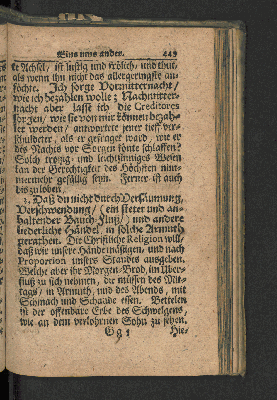 Eins ums ander. 449
te Achsel, ist lustig und frölich, und thut,
als wenn ihn nicht das allergeringste an-
föchte. Ich sorge Vormitternacht /
wie ich bezahlen wolle; Nachmitter-
nacht aber lasse ich die Creditores
sorgen, wie sie von mir können bezah-
let werden / antwortete jener tieff ver-
schuldeter, als er gefraget ward, wie er
des Nachts vor Sorgen könte schlaffen?
Solch trotzig- und leichtsinniges Wesen
kan der Gerechtigkeit des Höchsten nim-
mermehr gefällig seyn. Ferner ist auch
dis zu loben,
2. Daß du nicht durch Versäumung,
Verschwendung / (ein steter und an-
haltender Bauch-Fluß/) und andere
liederliche Händel, in solche Armuth
gerathen. Die Christliche Religion will,
daß wir unsere Hände mäßigen, und nach
Proportion unsers Standes ausgeben.
Welche aber ihr Morgen-Brod, im Uber-
fluß zu sich nehmen, die müssen des Mit-
tags / in Armuth, und des Abends, mit
Schmach und Schande essen. Betteln
ist der offenbare Erbe des Schwelgens,
wie an dem verlohrnen Sohn zu sehen.
G g 1 Hie-